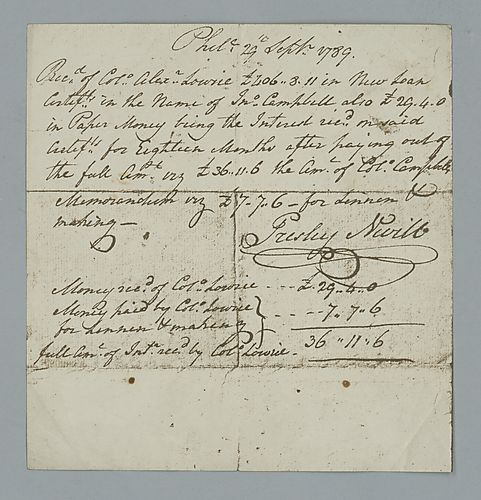 Phila. 29th Septr. 1789.
Rec'd of Colo. Alexr. Lowrie £406..3..11 in New Loan
Certifs. in the Name of Jno. Campbell also £29..4..0
in Paper Money being the Interest rec'd on said
Certifs. for Eighteen Months after paying out of
the full Amt. viz £36..11..6 the Amt. of Colo. Campbells
Memorandum viz £7..7..6 – for Linnen &
making –
Presley Nevill
Money rec'd of Colo. Lowrie - - - £ 29..4..0
Money paid by Colo. Lowrie } - - - 7..7..6
for Linnen & making
full Amt. of Intt. rec'd by Colo. Lowrie - 36..11..6